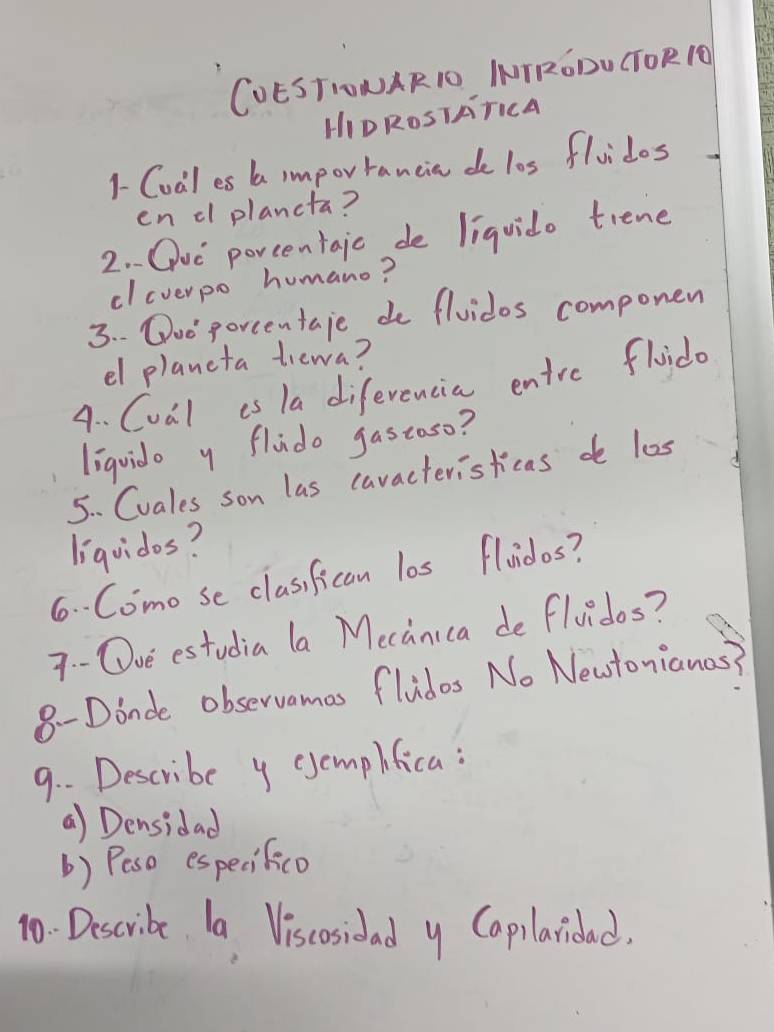 CUESTIONARIO INTRODUCTORIO
HIDROSTÁTICA
1- Cuál es la importancia de los fluidos
en el planeta?
2.- Qué porcentaje de líquido tiene
el cuerpo humano?
3.- Qué porcentaje de fluidos componen
el planeta tierra?
4.- Cuál es la diferencia entre fluido
líquido y fluido gaseoso?
5.- Cuales son las características de los
líquidos?
6.- Cómo se clasifican los fluidos?
7.- Qué estudia la Mecánica de fluidos?
8.- Dónde observamos fluidos No Newtonianos?
9.. Describe y ejemplifica:
a) Densidad
b) Peso específico
10.- Describe la Viscosidad y Capilaridad.